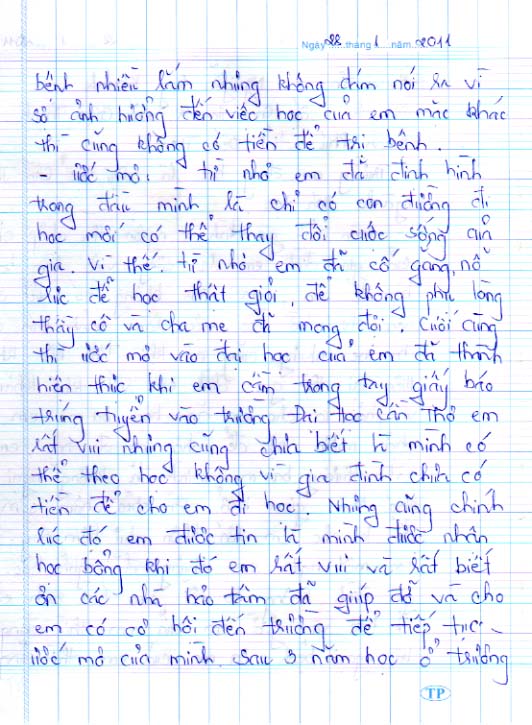 Ngày 28 tháng 1 năm 2011
bệnh nhiều lắm nhưng không dám nói ra vì
sợ ảnh hưởng đến việc học của em mặc khác
thì cũng không có tiền để trị bệnh.
- ước mơ: từ nhỏ em đã định hình
trong đầu mình là chỉ có con đường đi
học mới có thể thay đổi cuộc sống của
gia. Vì thế. từ nhỏ em đã cố gắng, nổ
lực để học thật giỏi, để không phụ lòng
thầy cô và cha mẹ đã mong đợi. Cuối cùng
thì ước mơ vào đại học của em đã thành
hiện thực khi em cầm trong tay giấy báo
trúng tuyển vào trường Đại Học Cần Thơ em
rất vui nhưng cũng chưa biết là mình có
thể theo học không vì gia đình chưa có
tiền để cho em đi học. Nhưng cũng chính
lúc đó em được tin là mình được nhận
học bổng khi đó em rất vui và rất biết
ơn các nhà hảo tâm đã giúp đỡ và cho
em có cơ hội đến trường để tiếp tục
ước mơ của mình. Sau 3 năm học ở trường
TP